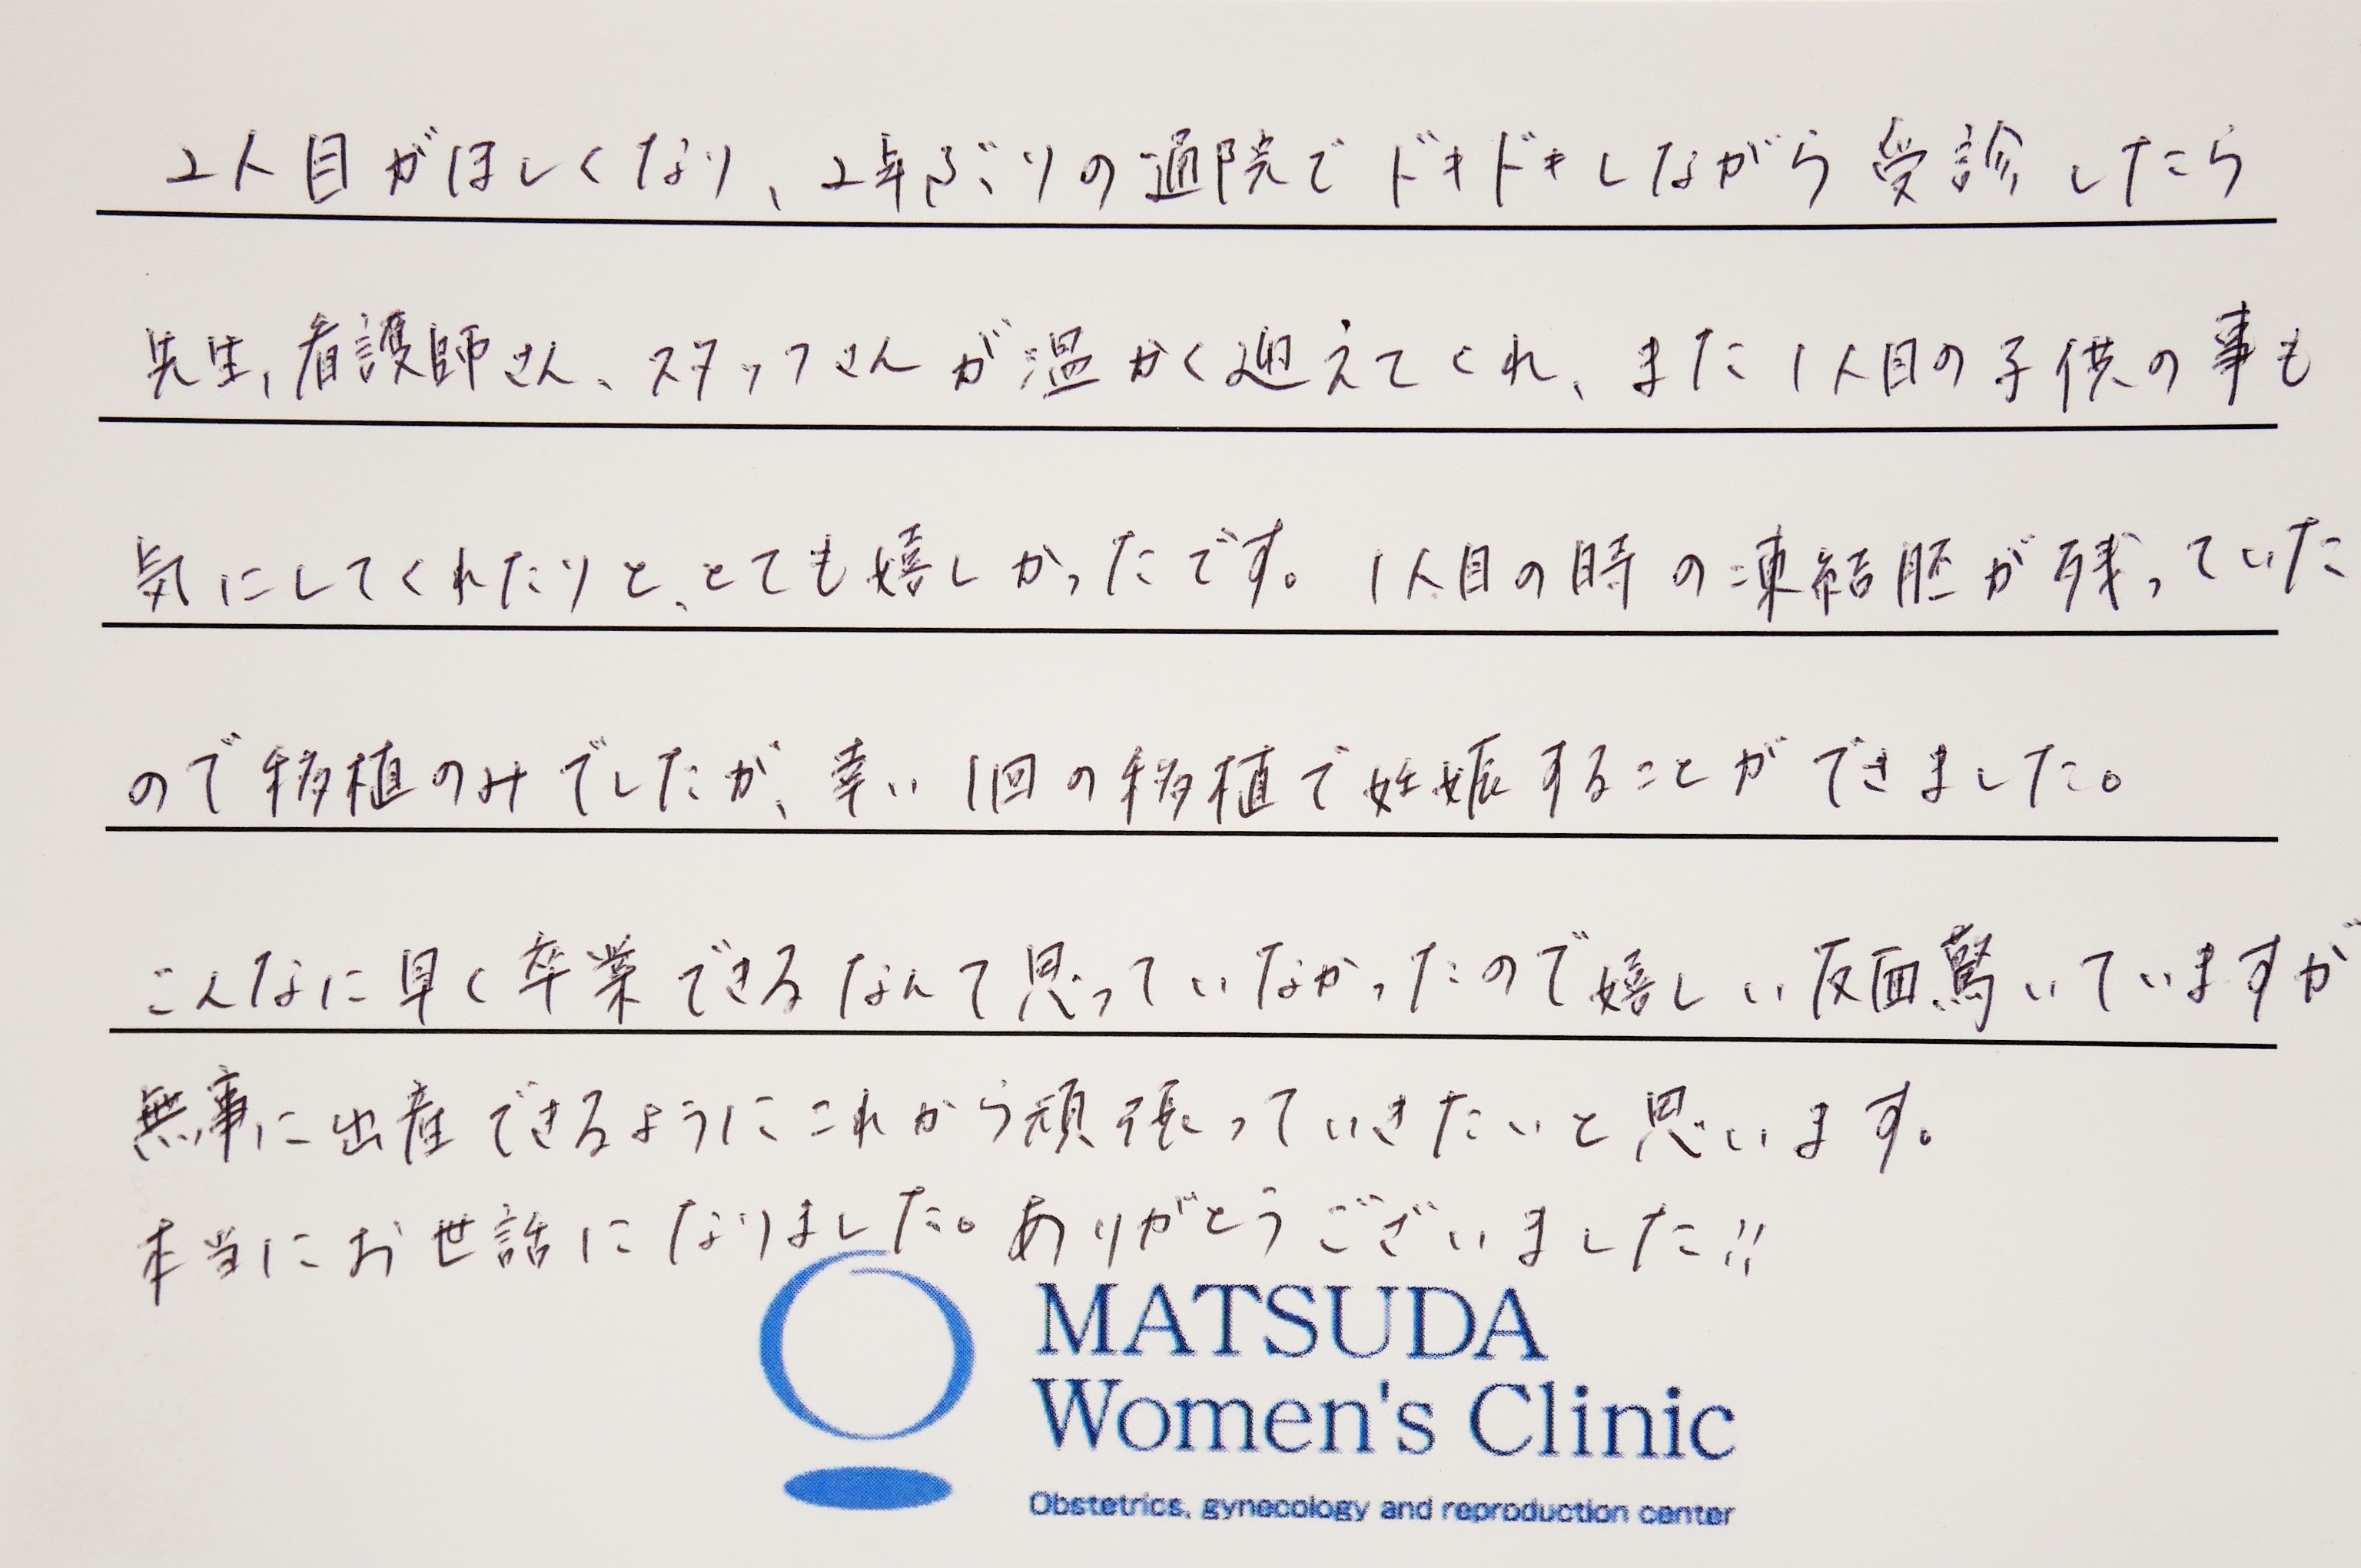 2人目がほしくなり、2年ぶりの通院でドキドキしながら受診したら
先生、看護師さん、スタッフさんが温かく迎えてくれ、また1人目の子供の事も
気にしてくれたりと、とても嬉しかったです。1人目の時の凍結胚が残っていた
ので移植のみでしたが、幸い1回の移植で妊娠することができました。
こんなに早く卒業できるなんて思っていなかったので嬉しい反面驚いていますが
無事に出産できるようにこれから頑張っていきたいと思います。
本当にお世話になりました。ありがとうございました!!
MATSUDA
Women's Clinic
Obstetrics, gynecology and reproduction center